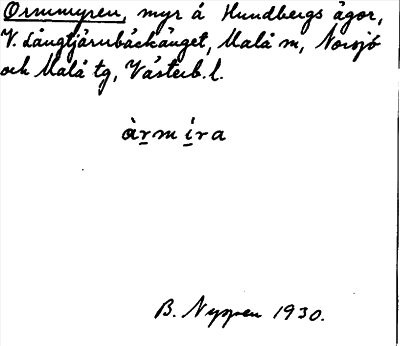 Ormmyren, myr å Hundbergs ägor,
V. Långtjärnbäckänget, Malå m, Norsjö
och Malå tg, Västerb. l.
àr̲m í̲ra
B. Nyssen 1930.